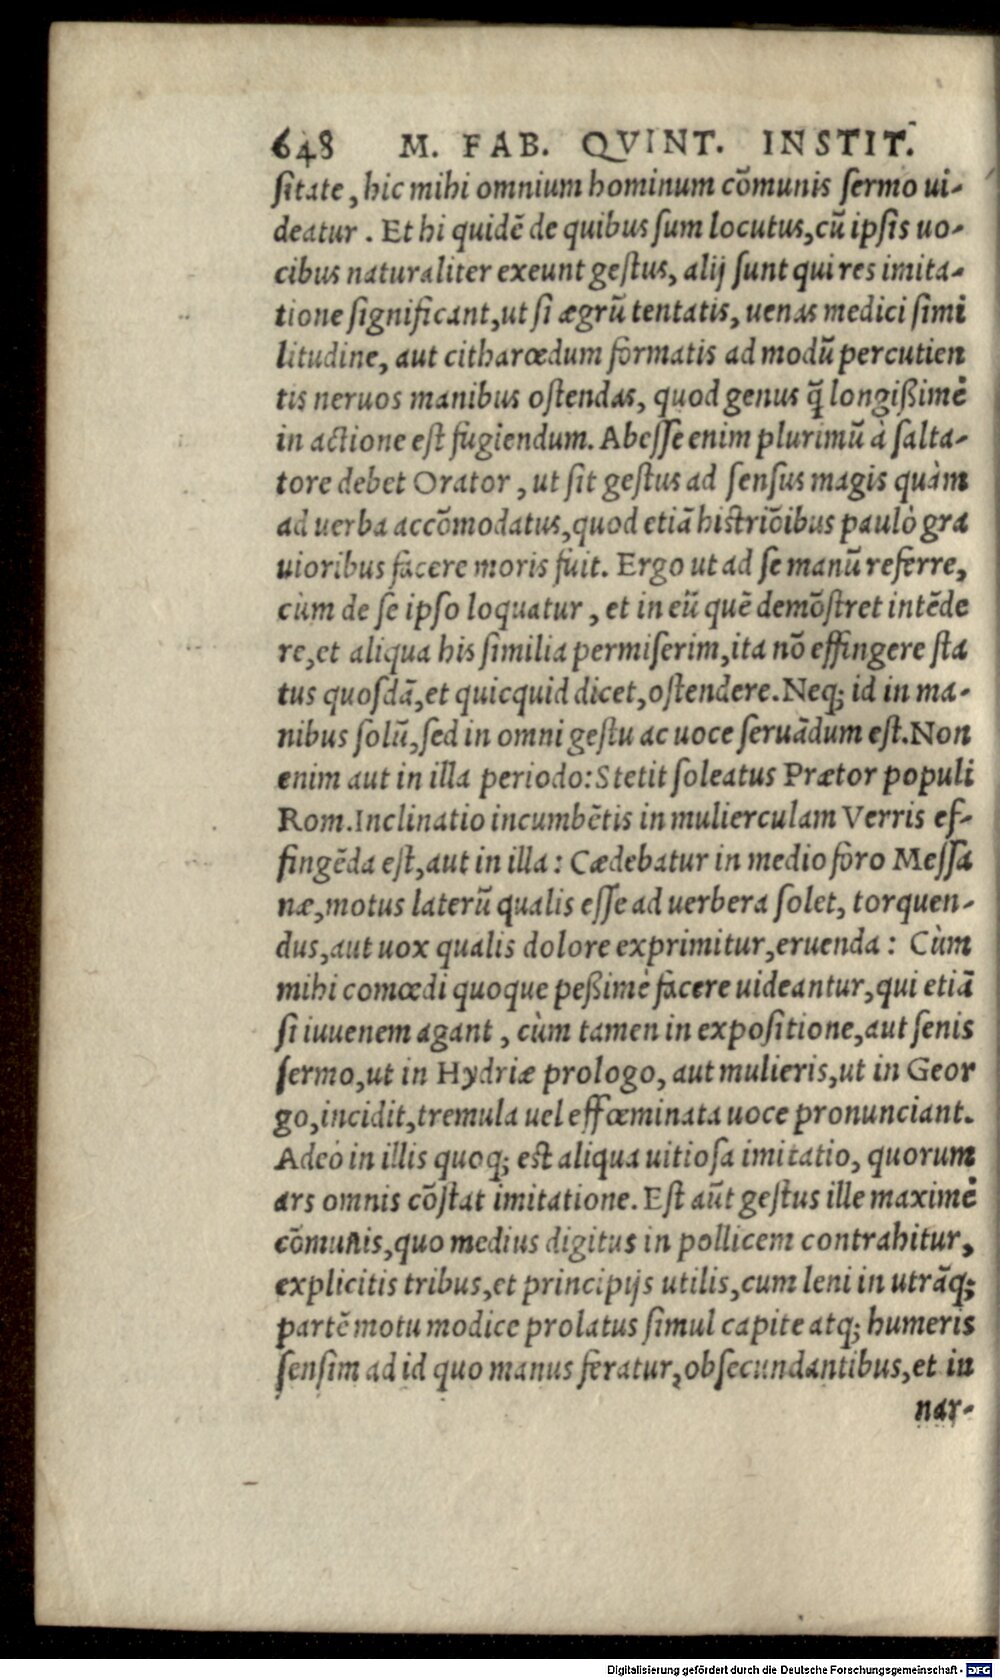 648 M. FAB. QVINT. INSTIT.
sitate, hic mihi omnium hominum cõmunis sermo ui-
deatur. Et hi quidẽ de quibus sum locutus, cũ ipsis uo-
cibus naturaliter exeunt gestus, alij sunt qui res imita-
tione significant, ut si ægrũ tentatis, uenas medici simi
litudine, aut citharœdum formatis ad modũ percutien
tis neruos manibus ostendas, quod genus q̃ longißimè
in actione est fugiendum. Abesse enim plurimũ à salta-
tore debet Orator, ut sit gestus ad sensus magis quàm
ad uerba accõmodatus, quod etiã histriõibus paulò gra
uioribus facere moris fuit. Ergo ut ad se manũ referre,
cùm de se ipso loquatur, et in eũ quẽ demõstret intẽde
re, et aliqua his similia permiserim, ita nõ effingere sta
tus quosdã, et quicquid dicet, ostendere. Neq; id in ma-
nibus solũ, sed in omni gestu ac uoce seruãdum est. Non
enim aut in illa periodo: Stetit soleatus Prætor populi
Rom. Inclinatio incumbẽtis in mulierculam Verris ef-
fingẽda est, aut in illa: Cædebatur in medio foro Messa
næ, motus laterũ qualis esse ad uerbera solet, torquen-
dus, aut uox qualis dolore exprimitur, eruenda: Cùm
mihi comœdi quoque peßimè facere uideantur, qui etiã
si iuuenem agant, cùm tamen in expositione, aut senis
sermo, ut in Hydriæ prologo, aut mulieris, ut in Geor
go, incidit, tremula uel effœminata uoce pronunciant.
Adeò in illis quoq; est aliqua uitiosa imitatio, quorum
ars omnis cõstat imitatione. Est aũt gestus ille maximè
cõmunis, quo medius digitus in pollicem contrahitur,
explicitis tribus, et principijs utilis, cum leni in utrãq;
partẽ motu modice prolatus simul capite atq; humeris
sensim ad id quo manus feratur, obsecundantibus, et in
nar-
Digitalisierung gefördert durch die Deutsche Forschungsgemeinschaft - DFG